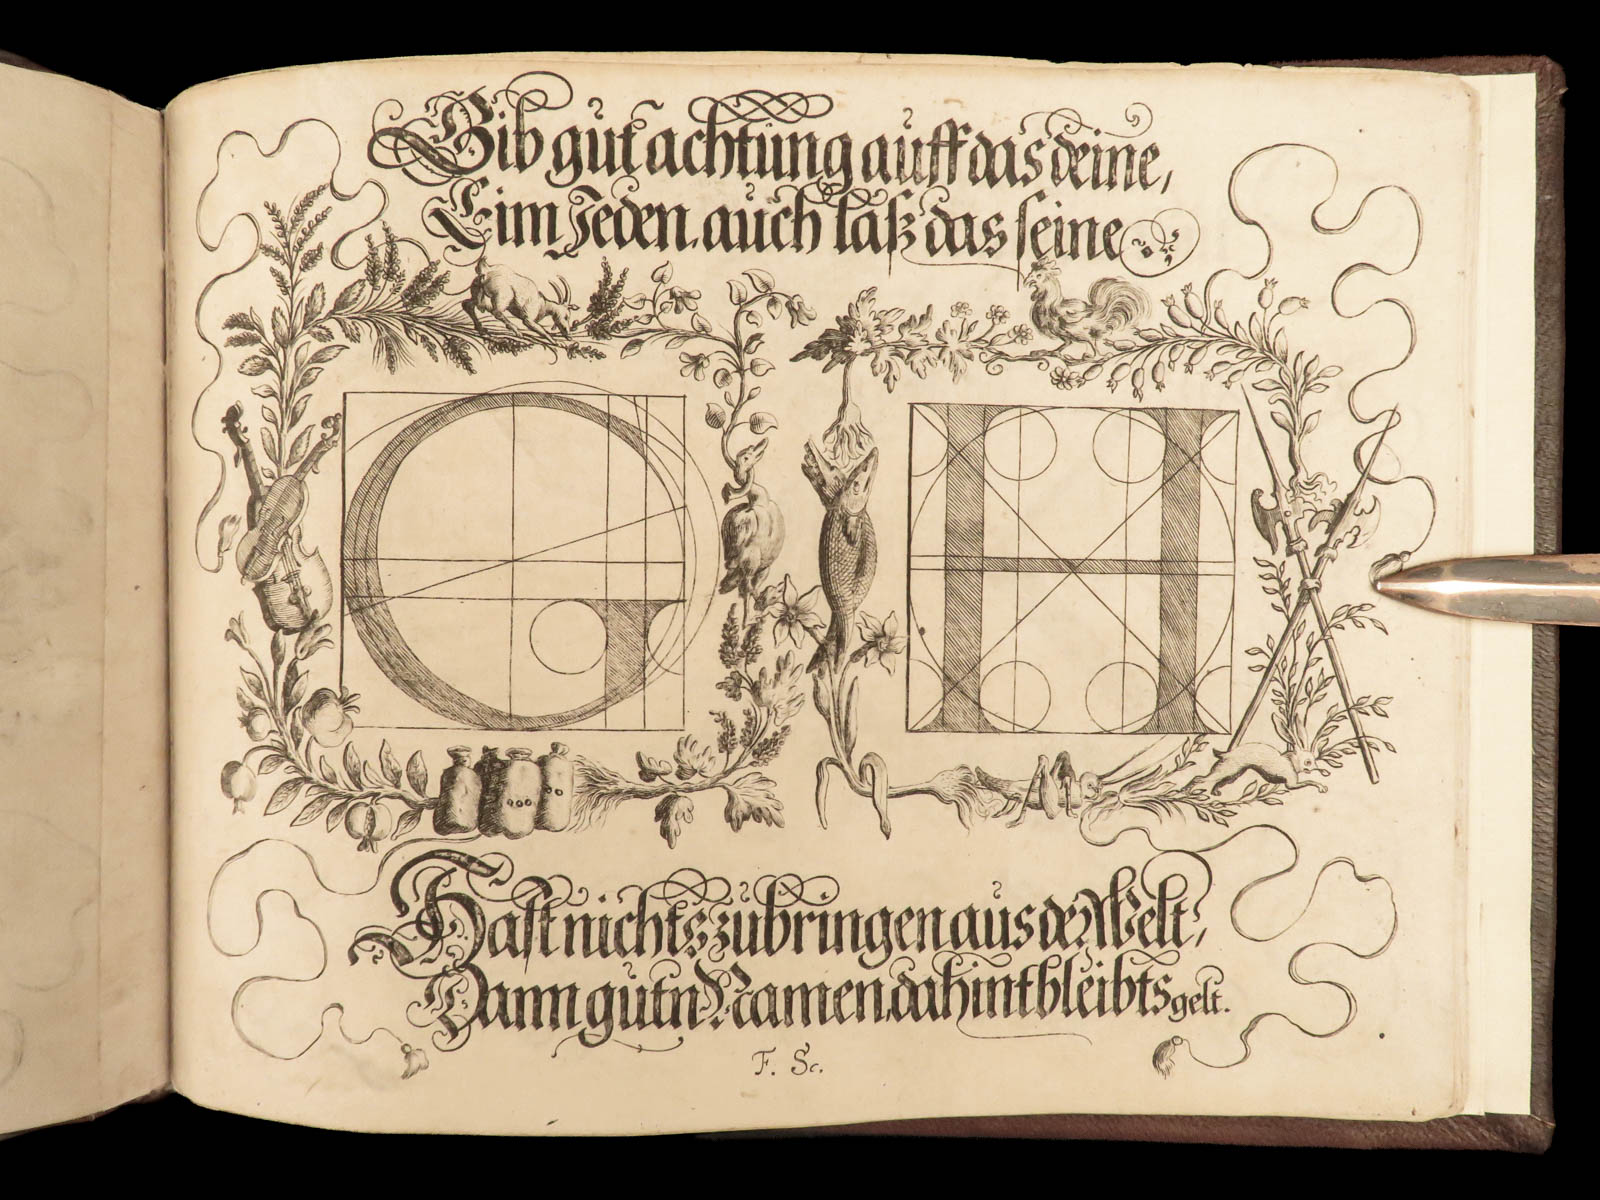 Gib gut achtung auff das deine,
Eim Jeden. auch laß das seine
G H
Hast nichts zubringen aus der Welt,
Dann gutn Namen, dahint bleibts gelt.
F. Sc.